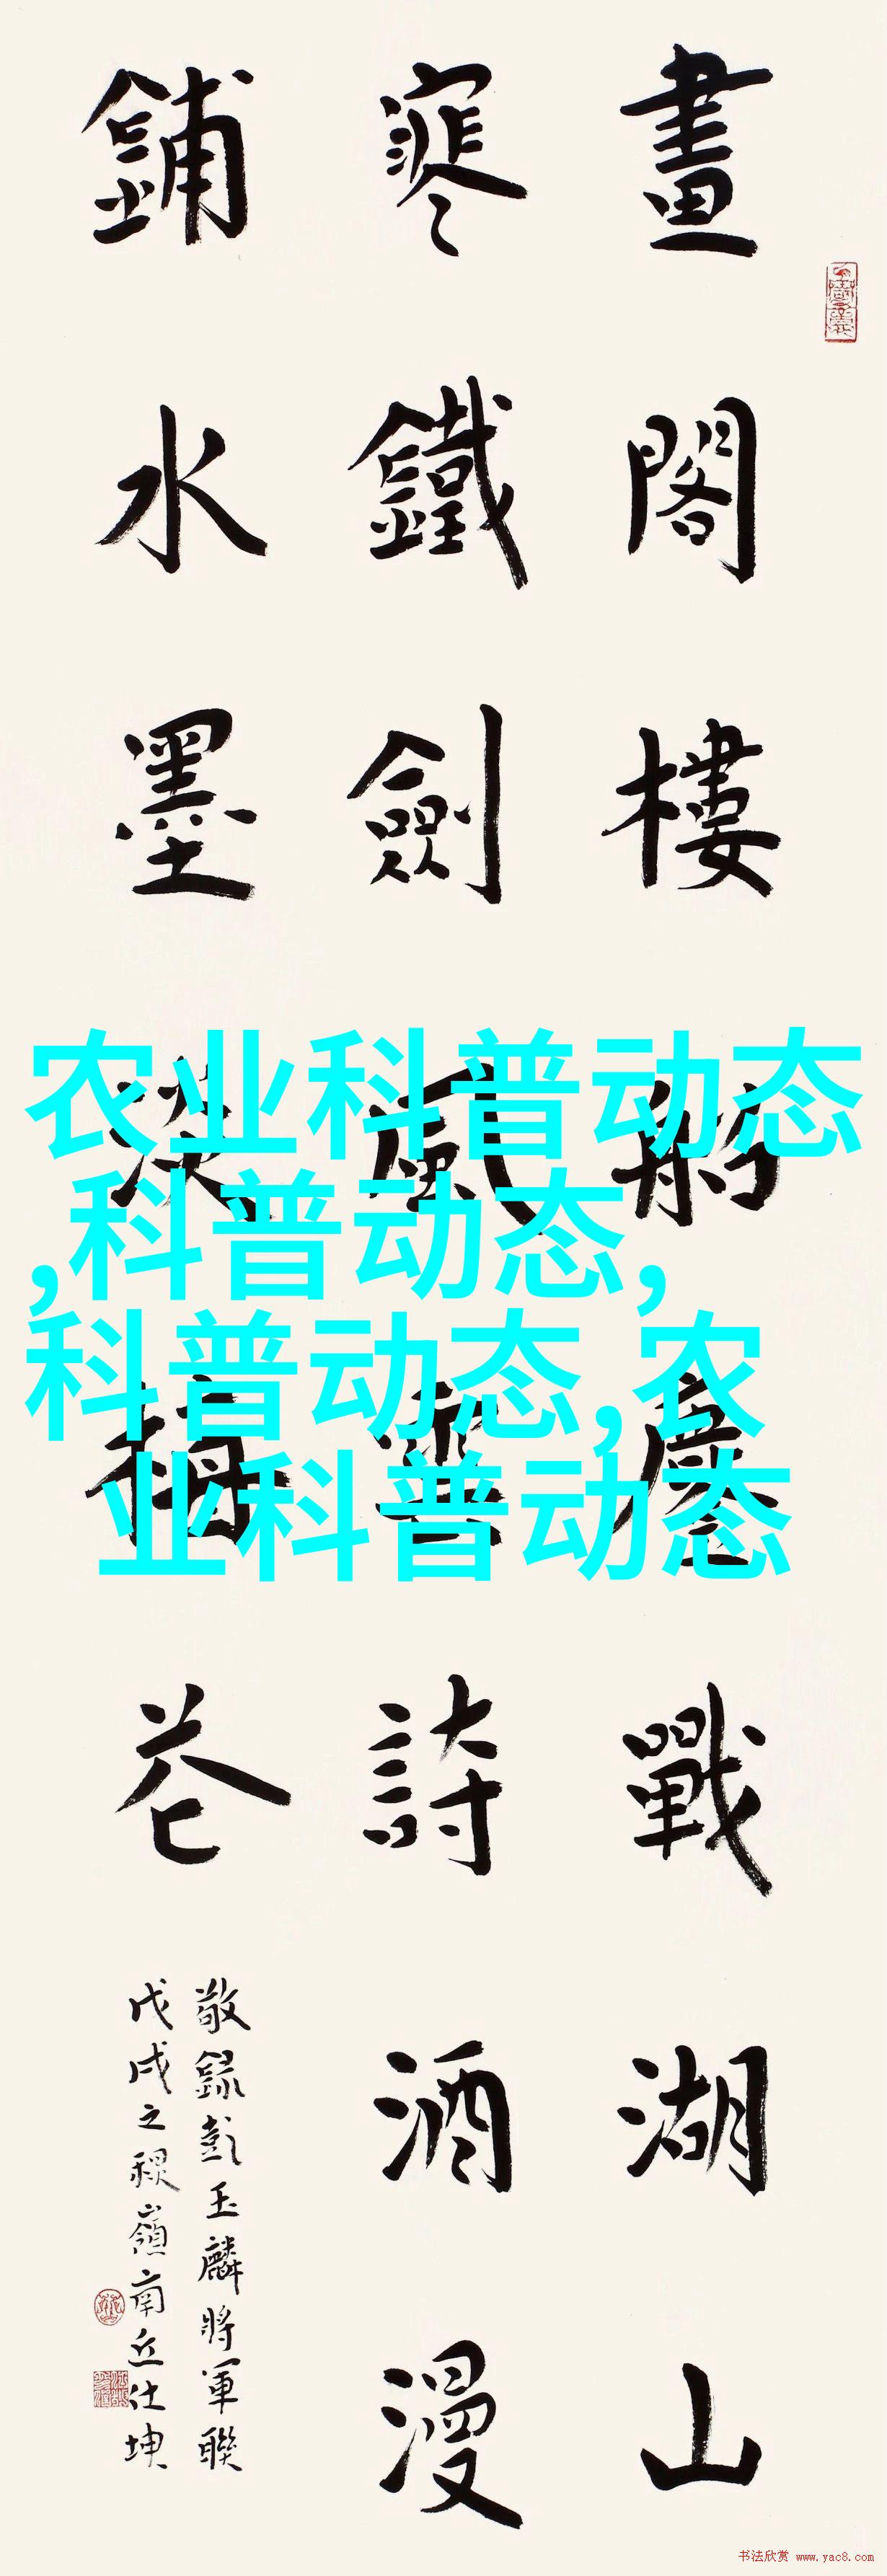 畫閣樓船鏖戰湖山
寒鐵劍風雲詩酒漫
鋪水墨淡梅花
敬錄彭玉麟將軍聯
戊戌之穐嶺南丘仕坤
农业科普动态
,科普动态,
科普动态,农
业科普动态
书法欣赏 www.yac8.com